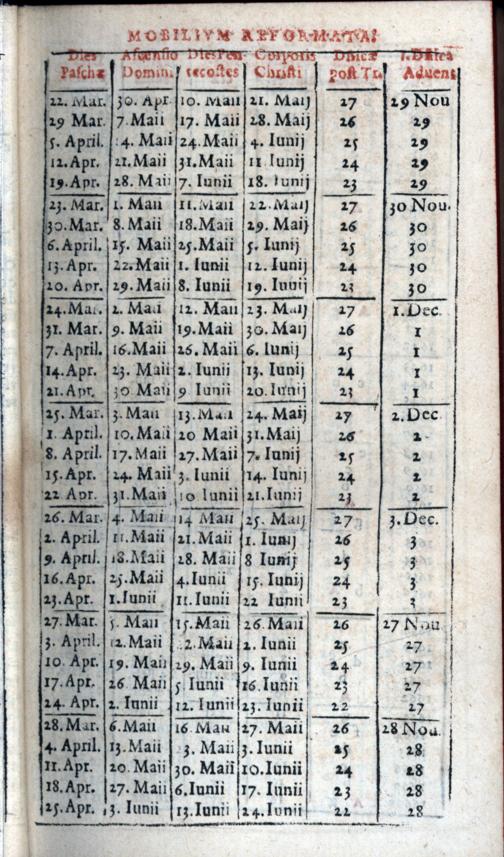 MOBILIVM REFORMATA.
Dies Ascensio Dies Pen- Corporis Dñicæ 1. Dñica
Paschæ Domini tecostes Christi post Tr. Aduent
22. Mar. 30. Apr 10. Maii 21. Maij 27 29 Nou
29 Mar. 7. Maii 17. Maii 28. Maij 26 29
5. April. 14. Maii 24. Maii 4. Iunij 25 29
12. Apr. 21. Maii 31. Maii 11 Iunij 24 29
19. Apr. 28. Maii 7. Iunii 18. Iunij 23 29
23. Mar. 1. Maii 11. Maii 22. Maij 27 30 Nou.
30. Mar. 8. Maii 18. Maii 29. Maij 26 30
6. April. 15. Maii 25. Maii 5. Iunij 25 30
13. Apr. 22. Maii 1. Iunii 12. Iunij 24 30
20. Apr. 29. Maii 8. Iunii 19. Iunij 23 30
24. Mar. 2. Maii 12. Maii 23. Maij 27 1. Dec.
31. Mar. 9. Maii 19. Maii 30. Maij 26 1
7. April. 16. Maii 26. Maii 6. Iunij 25 1
14. Apr. 23. Maii 2. Iunii 13. Iunij 24 1
21. Apr. 30 Maii 9 Iunii 20. Iunij 23 1
25. Mar. 3. Maii 13. Maii 24. Maij 27 2. Dec.
1. April. 10. Maii 20 Maii 31. Maij 26 2
8. April. 17. Maii 27. Maii 7. Iunij 25 2
15. Apr. 24. Maii 3. Iunii 14. Iunij 24 2
22 Apr. 31. Maii 10 Iunii 21. Iunij 23 2
26. Mar. 4. Maii 14 Maii 25. Maij 27 3. Dec.
2. April. 11. Maii 21. Maii 1. Iunij 26 3
9. April. 18. Maii 28. Maii 8 Iunij 25 3
16. Apr. 25. Maii 4. Iunii 15. Iunij 24 3
23. Apr. 1. Iunii 11. Iunii 22 Iunii 23 3
27. Mar. 5. Maii 15. Maii 26. Maii 26 27 Nou
3. April. 12. Maii 2. Maii 2. Iunii 25 27
10. Apr. 19. Maii 29. Maii 9. Iunii 24 27
17. Apr. 26 Maii 5. Iunii 16. Iunii 23 27
24. Apr. 2. Iunii 12. Iunii 23. Iunii 22 27
28. Mar. 6. Maii 16. Maii 27. Maii 26 28 Nou.
4. April. 13. Maii 3. Maii 3. Iunii 25 28
11. Apr. 20. Maii 30. Maii 10. Iunii 24 28
18. Apr. 27. Maii 6. Iunii 17. Iunii 23 28
25. Apr. 3. Iunii 13. Iunii 24. Iunii 22 28